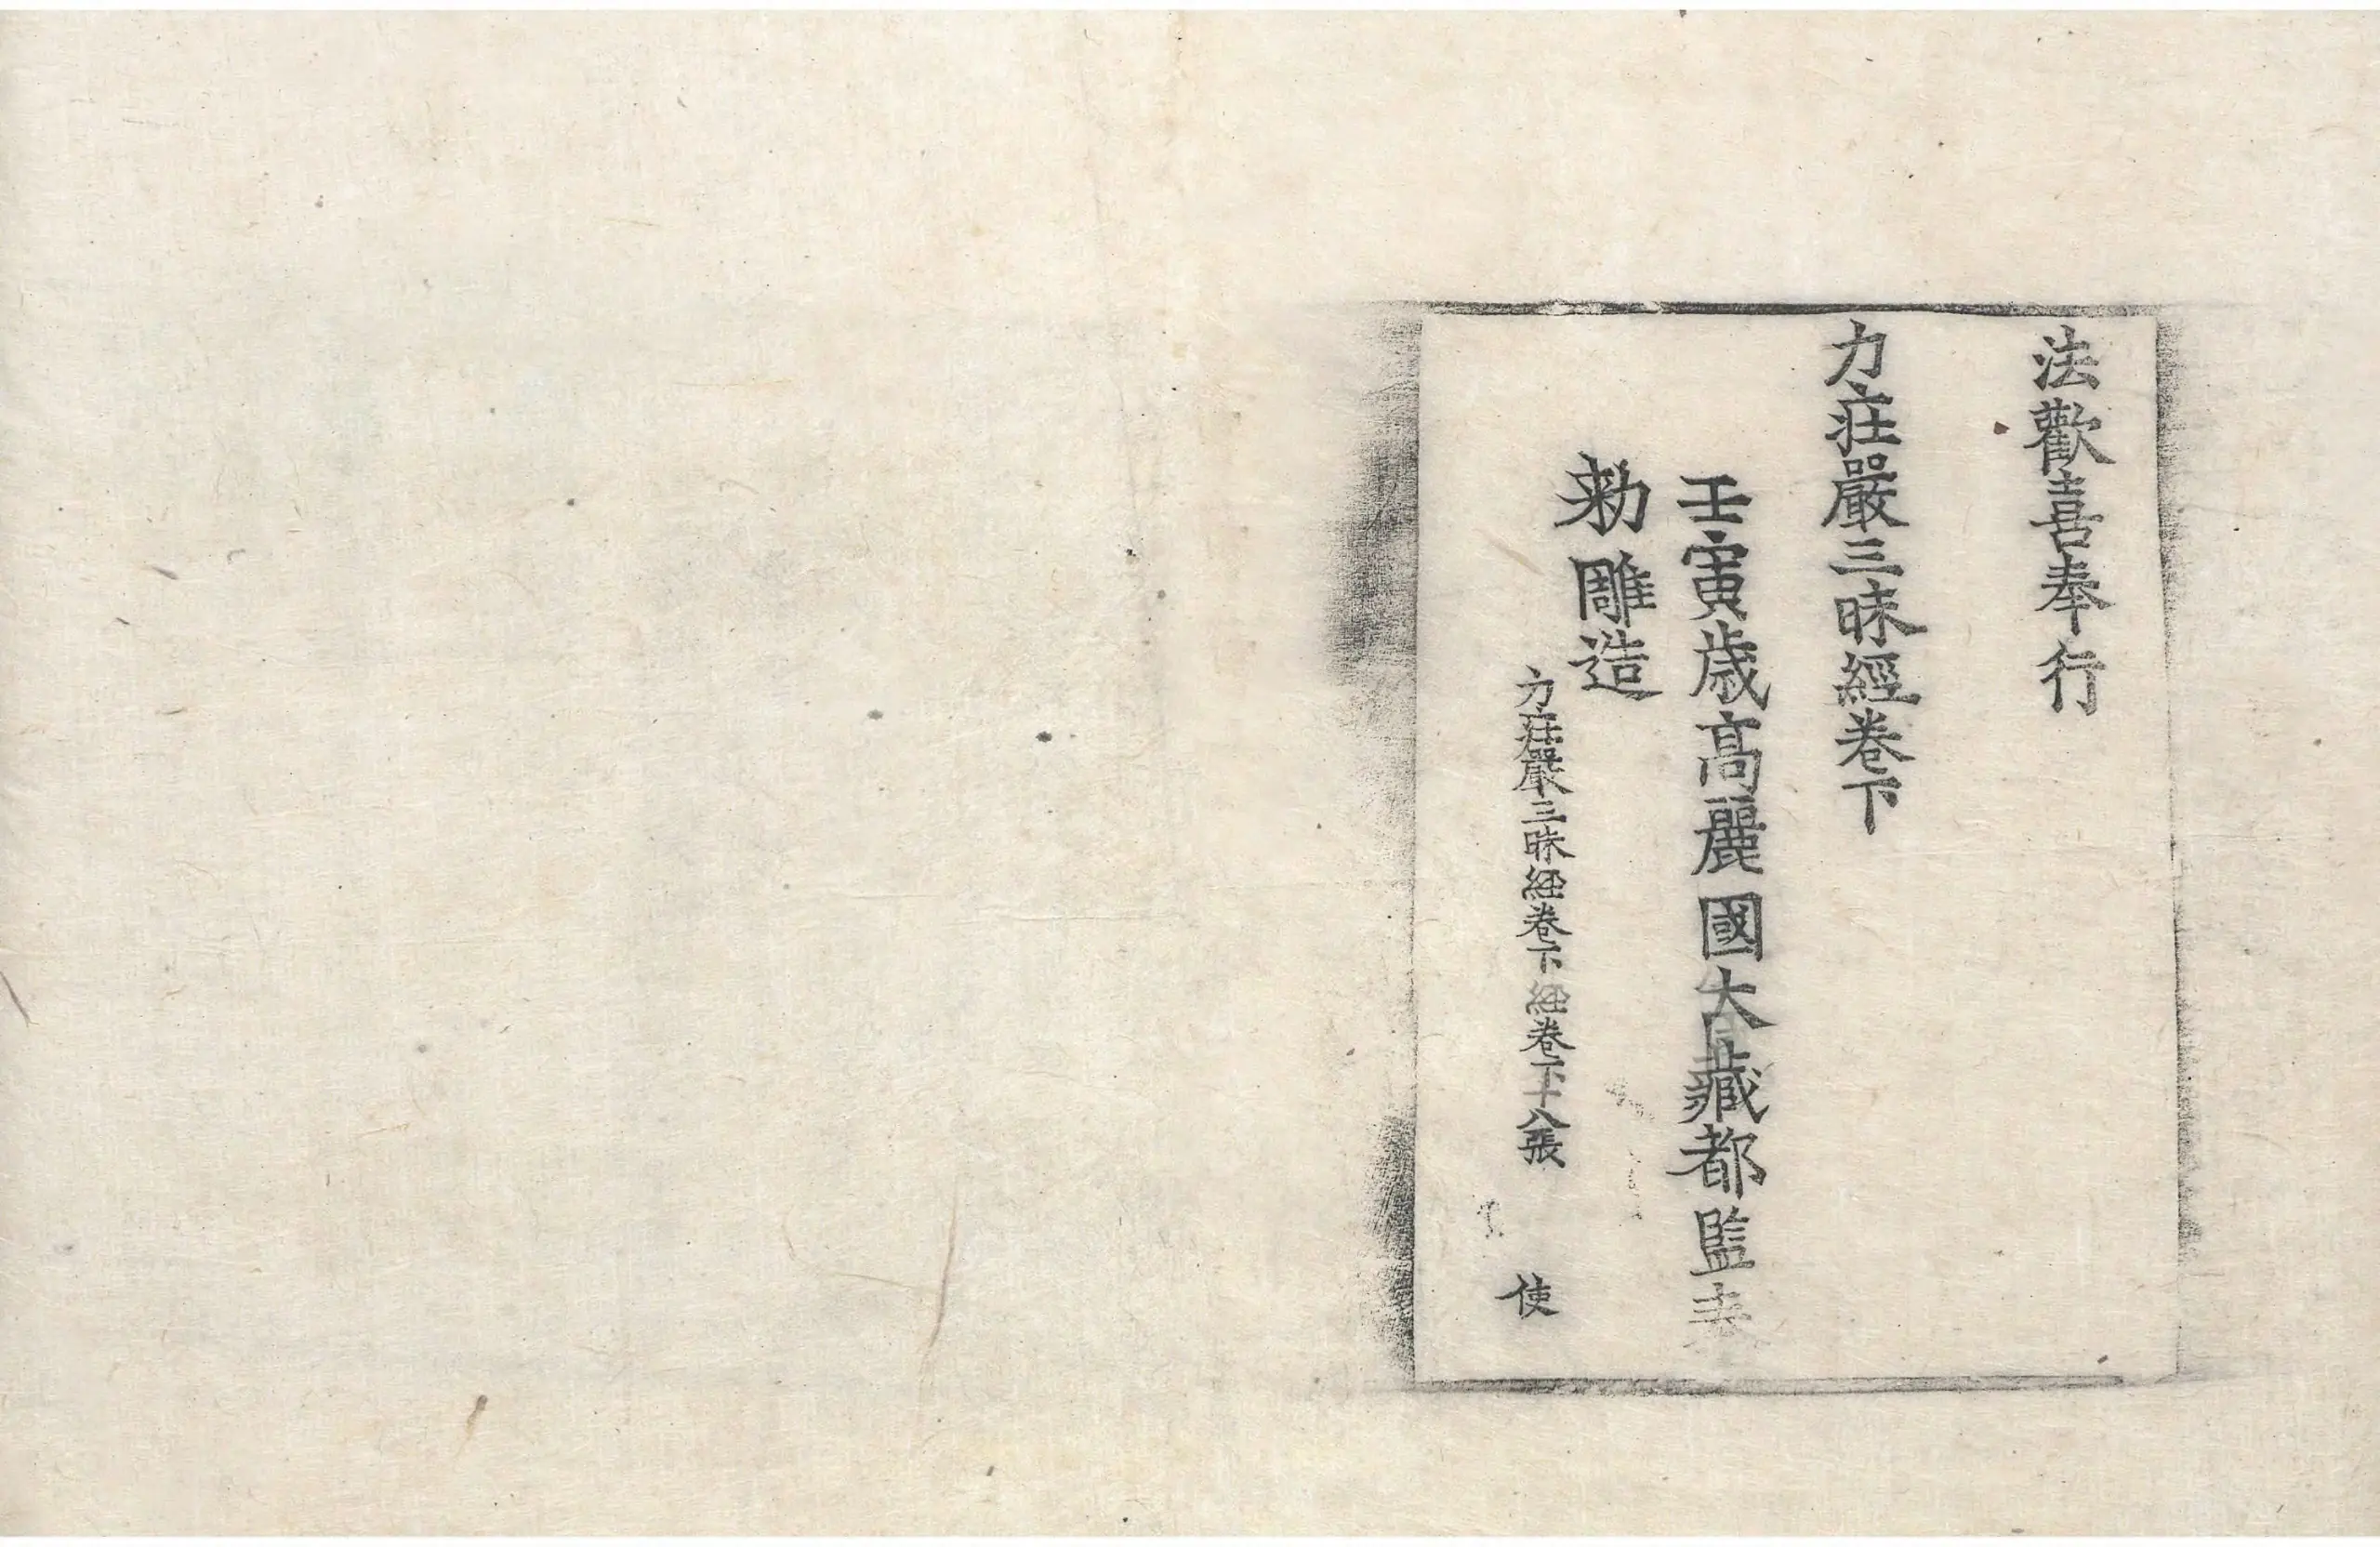 法歡喜奉行
力莊嚴三昧經卷下
壬寅歲高麗國大藏都監奉
勅雕造
力莊嚴三昧經卷下經卷下十八張 使